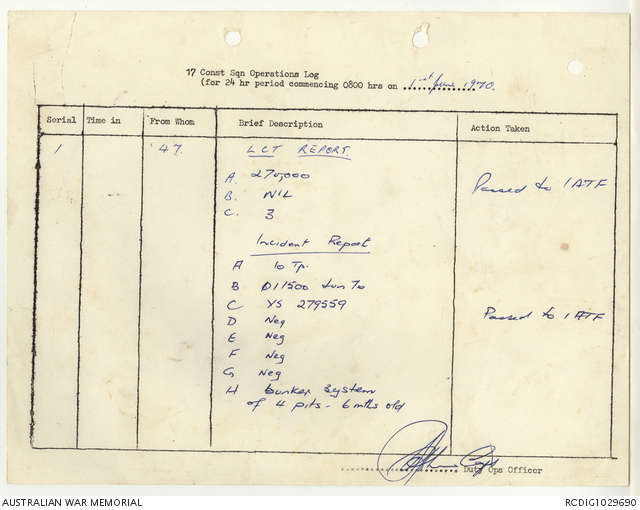 17 Const Sqn Operations Log
(for 24 hr period commencing 0800 hrs on 1st June 1970.
Serial Time in From Whom Brief Description Action Taken
1 47. LCT REPORT.
A. 270,000 Passed to 1ATF
B. NIL
C. 3
Incident Report
A 10 Tp.
B 011500 Jun 70
C YS 279559 Passed to 1ATF
D Neg
E Neg
F Neg
G Neg
H bunker system
of 4 pits - 6 mths old
Duty Ops Officer
AUSTRALIAN WAR MEMORIAL RCDIG1029690